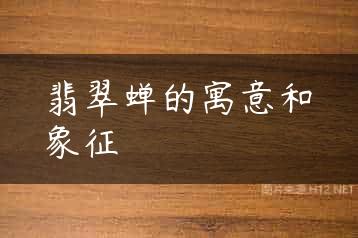 翡翠蝉的寓意和
象征
图片来源 H12.NET